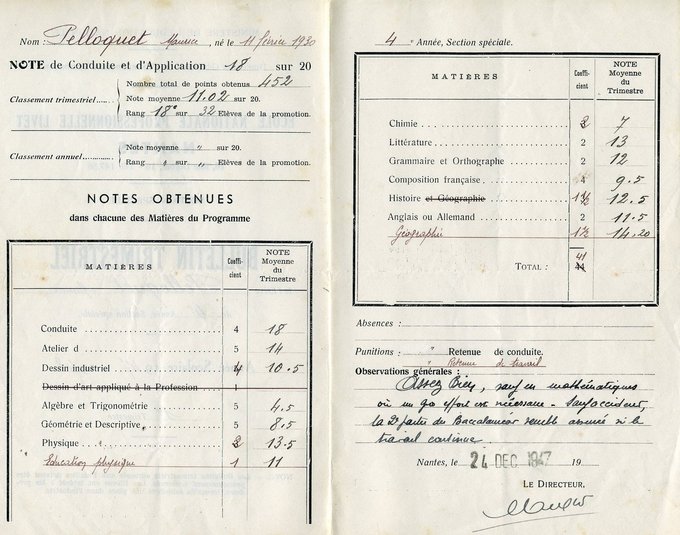 Nom : Pelloquet Maurice, né le 11 février 1930
NOTE de Conduite et d'Application 18 sur 20
Nombre total de points obtenus 452
Classement trimestriel...... Note moyenne 11.02 sur 20.
Rang 18e sur 32 Elèves de la promotion.
Classement annuel...... Note moyenne " sur 20.
Rang " sur " Elèves de la promotion.
NOTES OBTENUES
dans chacune des Matières du Programme
MATIÈRES Coefficient NOTE Moyenne du Trimestre
Conduite 4 18
Atelier d 5 14
Dessin industriel 4 10.5
Dessin d'art appliqué à la Profession 1
Algèbre et Trigonométrie 5 4.5
Géométrie et Descriptive 5 8.5
Physique " 13.5
Education physique 1 11
4e Année, Section spéciale.
MATIÈRES Coefficient NOTE Moyenne du Trimestre
Chimie 7
Littérature 2 13
Grammaire et Orthographe 2 12
Composition française 4 9.5
Histoire et Géographie 1½ 12.5
Anglais ou Allemand 2 11.5
Géographie 1½ 14.20
TOTAL : 41 44
Absences :
Punitions : " Retenue de conduite.
" Retenue de travail
Observations générales :
Assez bien, sauf en mathématiques
où un go effort est nécessaire - Sauf accident,
la 2e partie du Baccalauréat semble assurée si le
travail continue
Nantes, le 24 DEC 1947 19
LE DIRECTEUR,